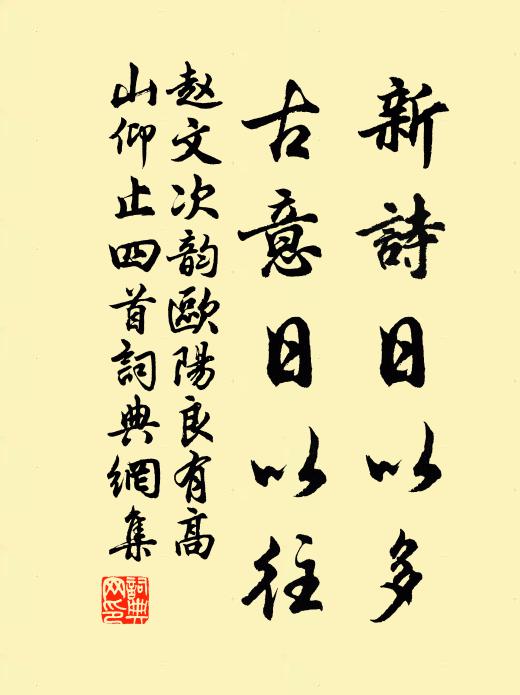 新詩日以多
古意日以往
赵文次韵歐陽良有高
山仰止四首詞典網集
詞典
网印